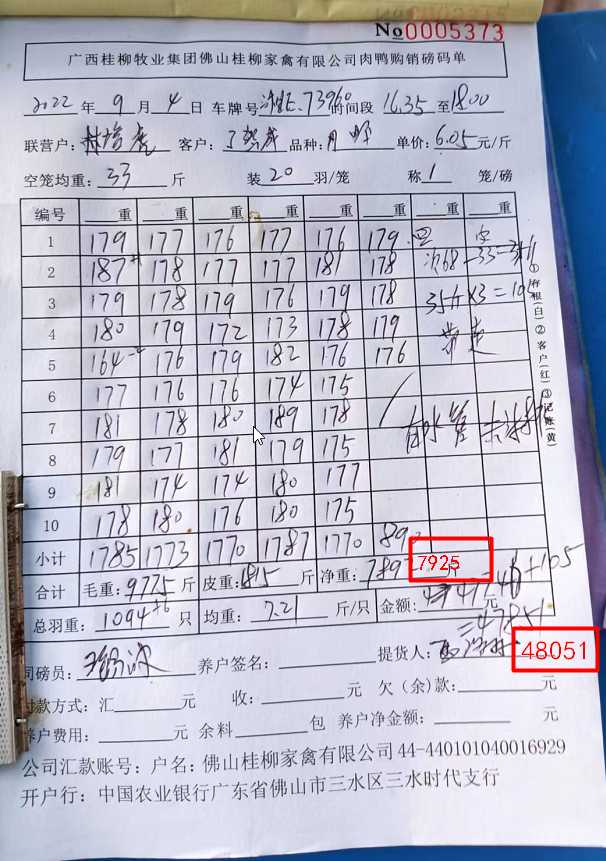 No0005373
广西桂柳牧业集团佛山桂柳家禽有限公司肉鸭购销磅码单
2022 年 9 月 4 日 车牌号 时间段 16.35 至 18:00
联营户: 客户: 品种: 单价: 6.05 元/斤
空笼均重: 33 斤 装 20 羽/笼 称 1 笼/磅
编号 重 重 重 重 重 重 重 重
1 179 177 176 177 176 179
2 187 178 177 177 181 178
3 179 178 179 176 179 178 35斤×3=105
4 180 179 172 173 178 179
5 164 176 179 182 176 176
6 177 176 176 174 175
7 181 178 180 189 178
8 179 177 181 179 175
9 181 174 174 180 177
10 178 180 176 180 175
小计 1785 1773 1770 1787 1770 7925
合计 毛重: 9775 斤 皮重: 1815 斤 净重: 斤 +105
总羽重: 1094+6 只 均重: 7.21 斤/只 金额: 元
=47851
司磅员: 养户签名: 提货人: 48051
付款方式: 汇 元 收: 元 欠（余）款: 元
养户费用: 元 余料 包 养户净金额: 元
公司汇款账号: 户名: 佛山桂柳家禽有限公司 44-440101040016929
开户行: 中国农业银行广东省佛山市三水区三水时代支行
①存根(白)②客户(红)③记账(黄)